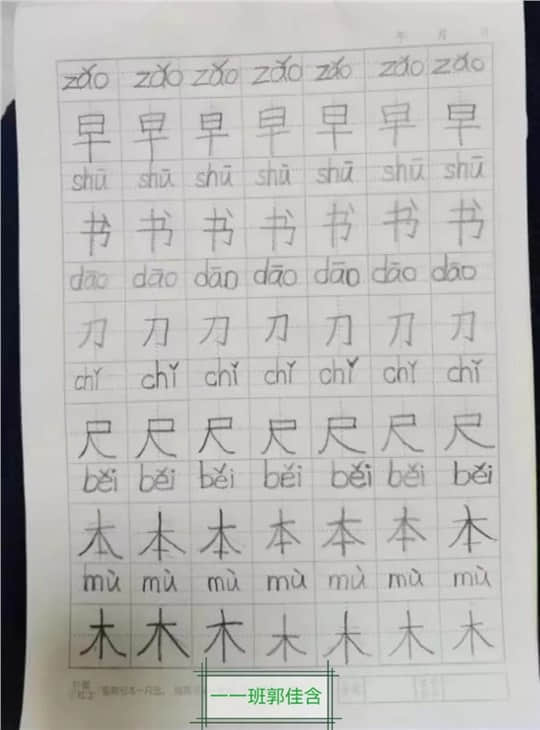 年 月 日
zǎo zǎo zǎo zǎo zǎo zǎo zǎo
早 早 早 早 早 早 早
shū shū shū shū shū shū shū
书 书 书 书 书 书 书
dāo dāo dāo dāo dāo dāo dāo
刀 刀 刀 刀 刀 刀 刀
chǐ chǐ chǐ chǐ chǐ chǐ chǐ
尺 尺 尺 尺 尺 尺 尺
běi běi běi běi běi běi běi
本 本 本 本 本 本 本
mù mù mù mù mù mù mù
木 木 木 木 木 木 木
一一班郭佳含